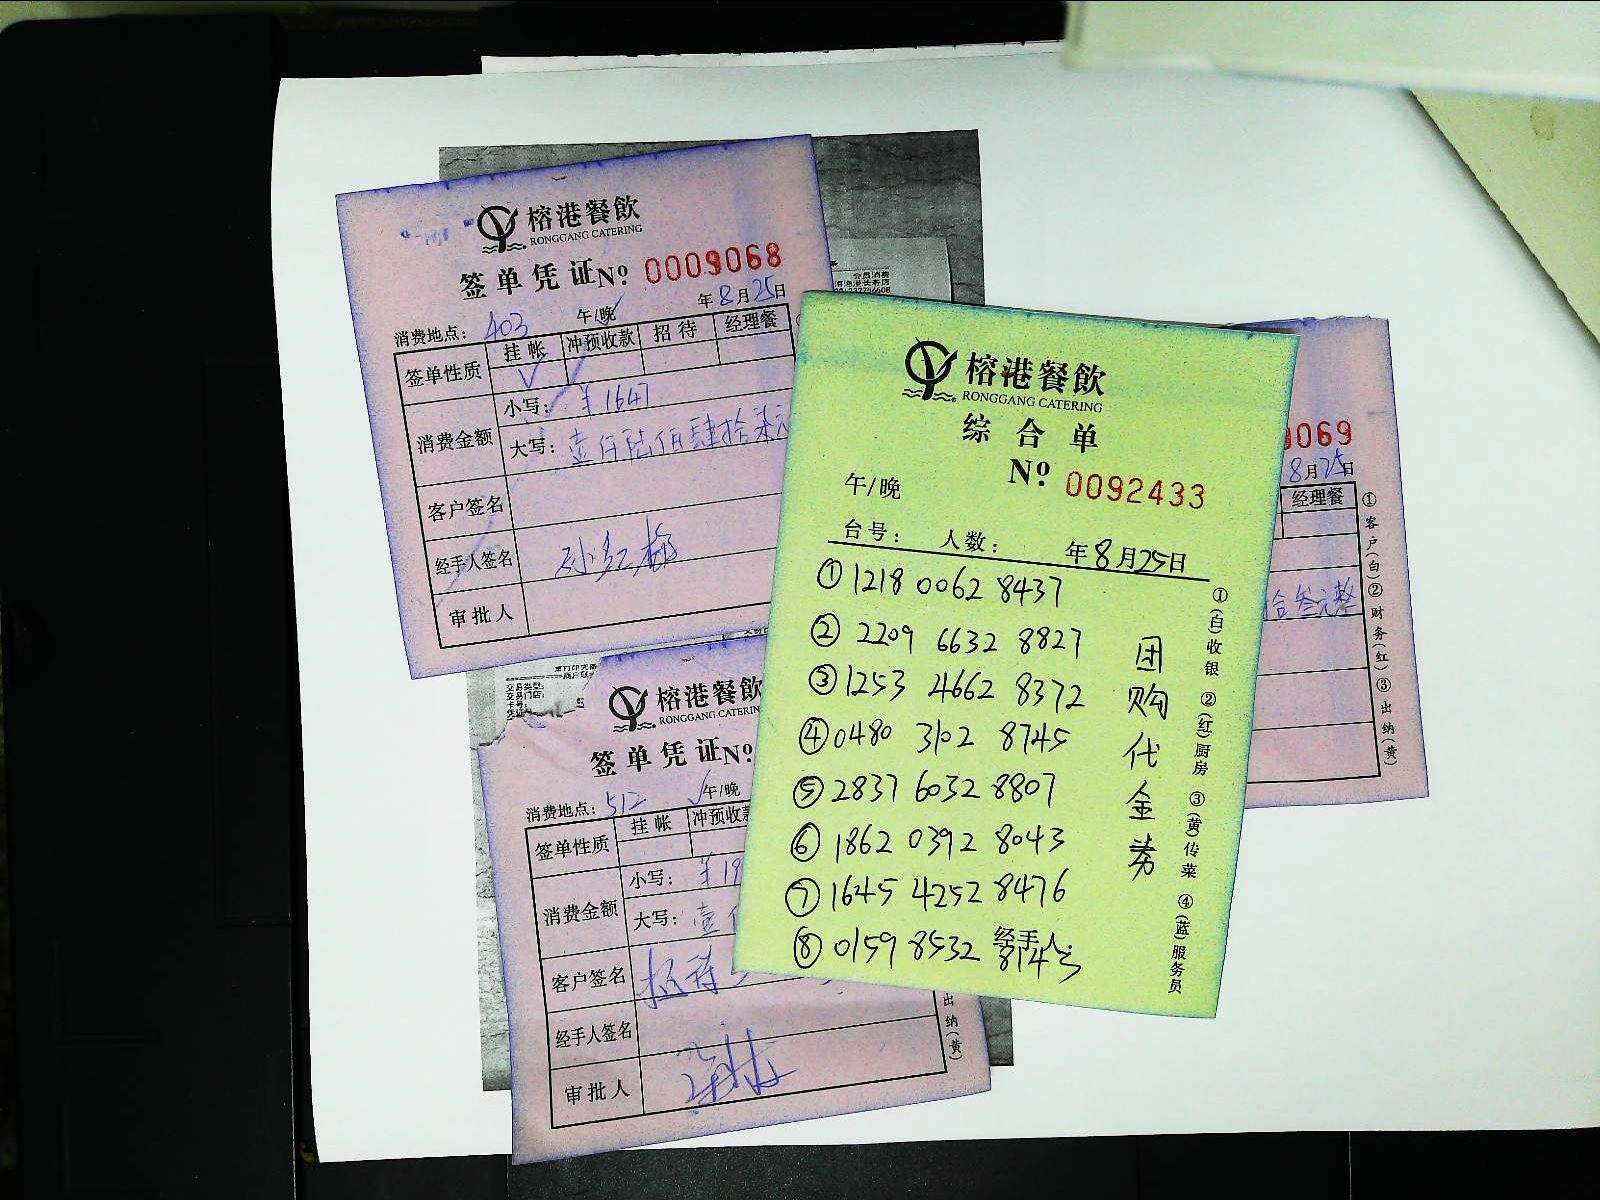 榕港餐飲
RONGGANG CATERING
签单凭证 Nº 0009068
年8月25日
消费地点：403 午/晚
签单性质 挂帐 冲预收款 招待 经理餐
√
消费金额 小写：¥1647
大写：壹仟陆佰肆拾柒元
客户签名
经手人签名 孙红梅
审批人
榕港餐飲
RONGGANG CATERING
综合单
Nº 0092433
午/晚
台号： 人数： 年8月25日
①1218 0062 8437
②2209 6632 8827
③1253 4662 8372
④0480 3102 8745
⑤2837 6032 8807
⑥1862 0392 8043
⑦1645 4252 8476
⑧0159 8532 8143
经手人：
团购代金券
①(白)收银 ②(红)厨房 ③(黄)传菜 ④(蓝)服务员
榕港餐飲
RONGGANG CATERIN
签单凭证 Nº
消费地点：512 午/晚
签单性质 挂帐 冲预收款
消费金额 小写：¥19
大写：壹
客户签名 招待
经手人签名
审批人
出纳(黄)
9069
8月25日
经理餐
拾叁元整
①客户(白)②财务(红)③出纳(黄)
交易类型：
交易门店：
卡号：
会员消费